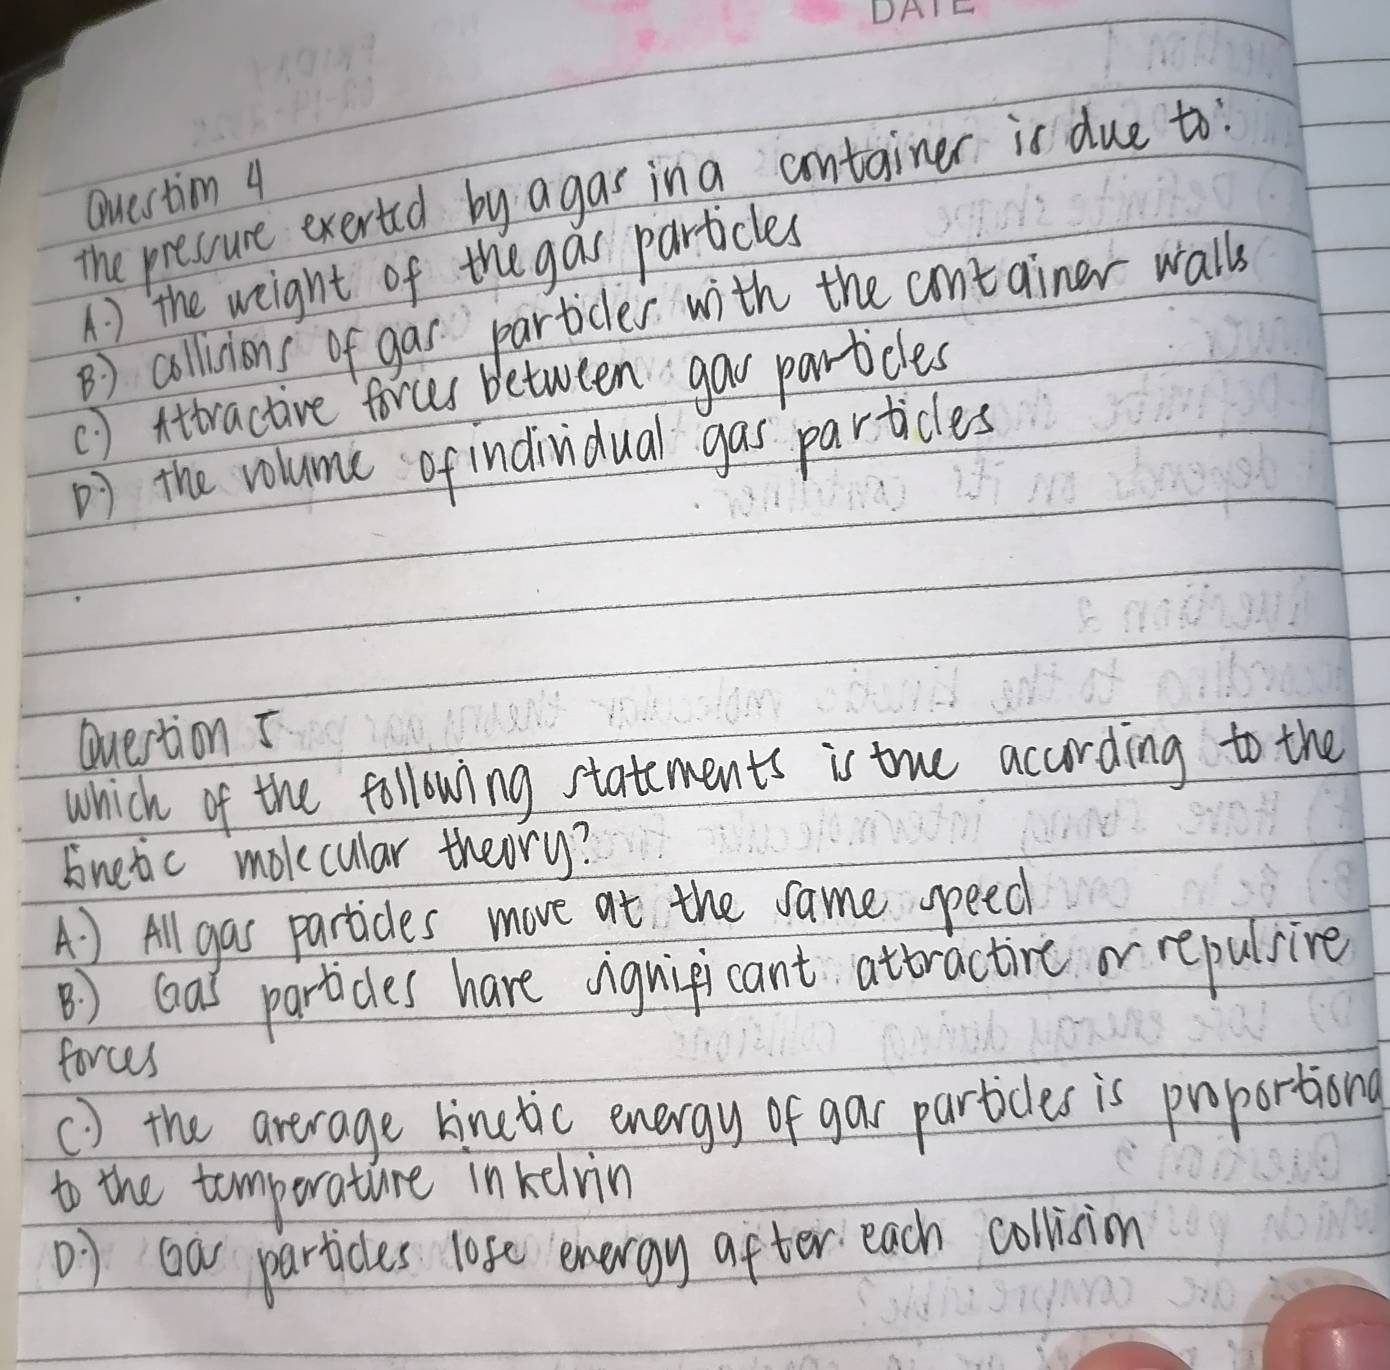 DATE
Question 4
The pressure exerted by a gas in a container is due to:
A.) The weight of the gas particles
B.) collisions of gas particles with the container walls
C.) Attractive forces between gas particles
D.) The volume of individual gas particles
Question 5
Which of the following statements is true according to the
kinetic molecular theory?
A.) All gas particles move at the same speed
B.) Gas particles have significant attractive or repulsive
forces
C.) The average kinetic energy of gas particles is proportiona
to the temperature in kelvin
D.) Gas particles lose energy after each collision